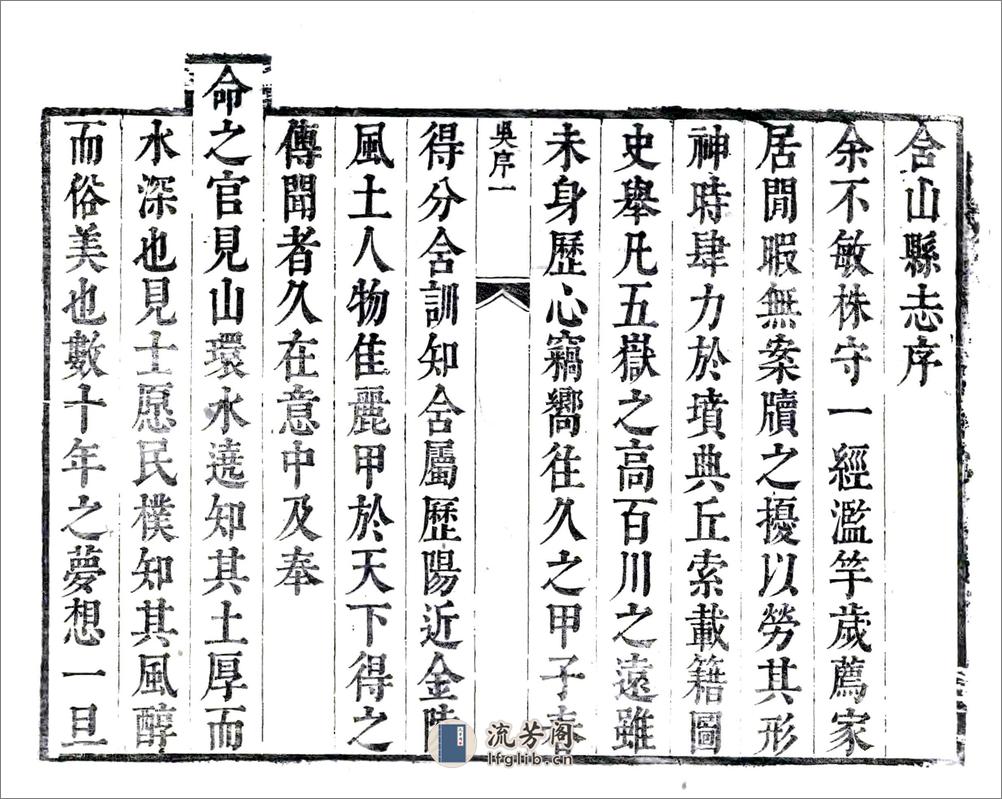 含山縣志序
余不敏株守一經濫竽歲薦家
居閒暇無案牘之擾以勞其形
神時肆力於墳典丘索載籍圖
史舉凡五嶽之高百川之遠雖
未身歷心竊嚮往久之甲子春
吳序一
得分含訓知含屬歷陽近金陵
風土人物佳麗甲於天下得之
傳聞者久在意中及奉
命之官見山環水遶知其土厚而
水深也見士愿民樸知其風醇
而俗美也數十年之夢想一旦
流芳阁
lfglib.cn